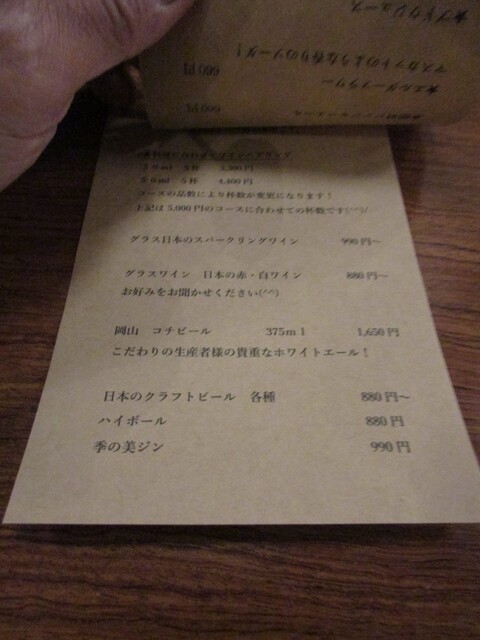 ★ブドウジュース
マスカットのような香りのソーダ！
660円
★エルダーフラワー
660円
5杯 3,300円
5杯 4,400円
コースの品数により杯数が変更になります！
上記は5,000円のコースに合わせての杯数です(^^)/
グラス日本のスパークリングワイン 990円～
グラスワイン 日本の赤・白ワイン 880円～
お好みをお聞かせください(^^)
岡山 コチビール 375ml 1,650円
こだわりの生産者様の貴重なホワイトエール！
日本のクラフトビール 各種 880円～
ハイボール 880円
季の美ジン 990円